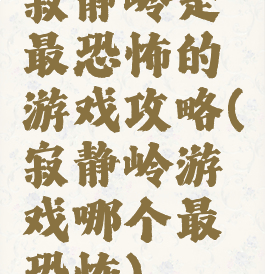 寂静岭是
最恐怖的
游戏攻略(
寂静岭游
戏哪个最
恐怖)